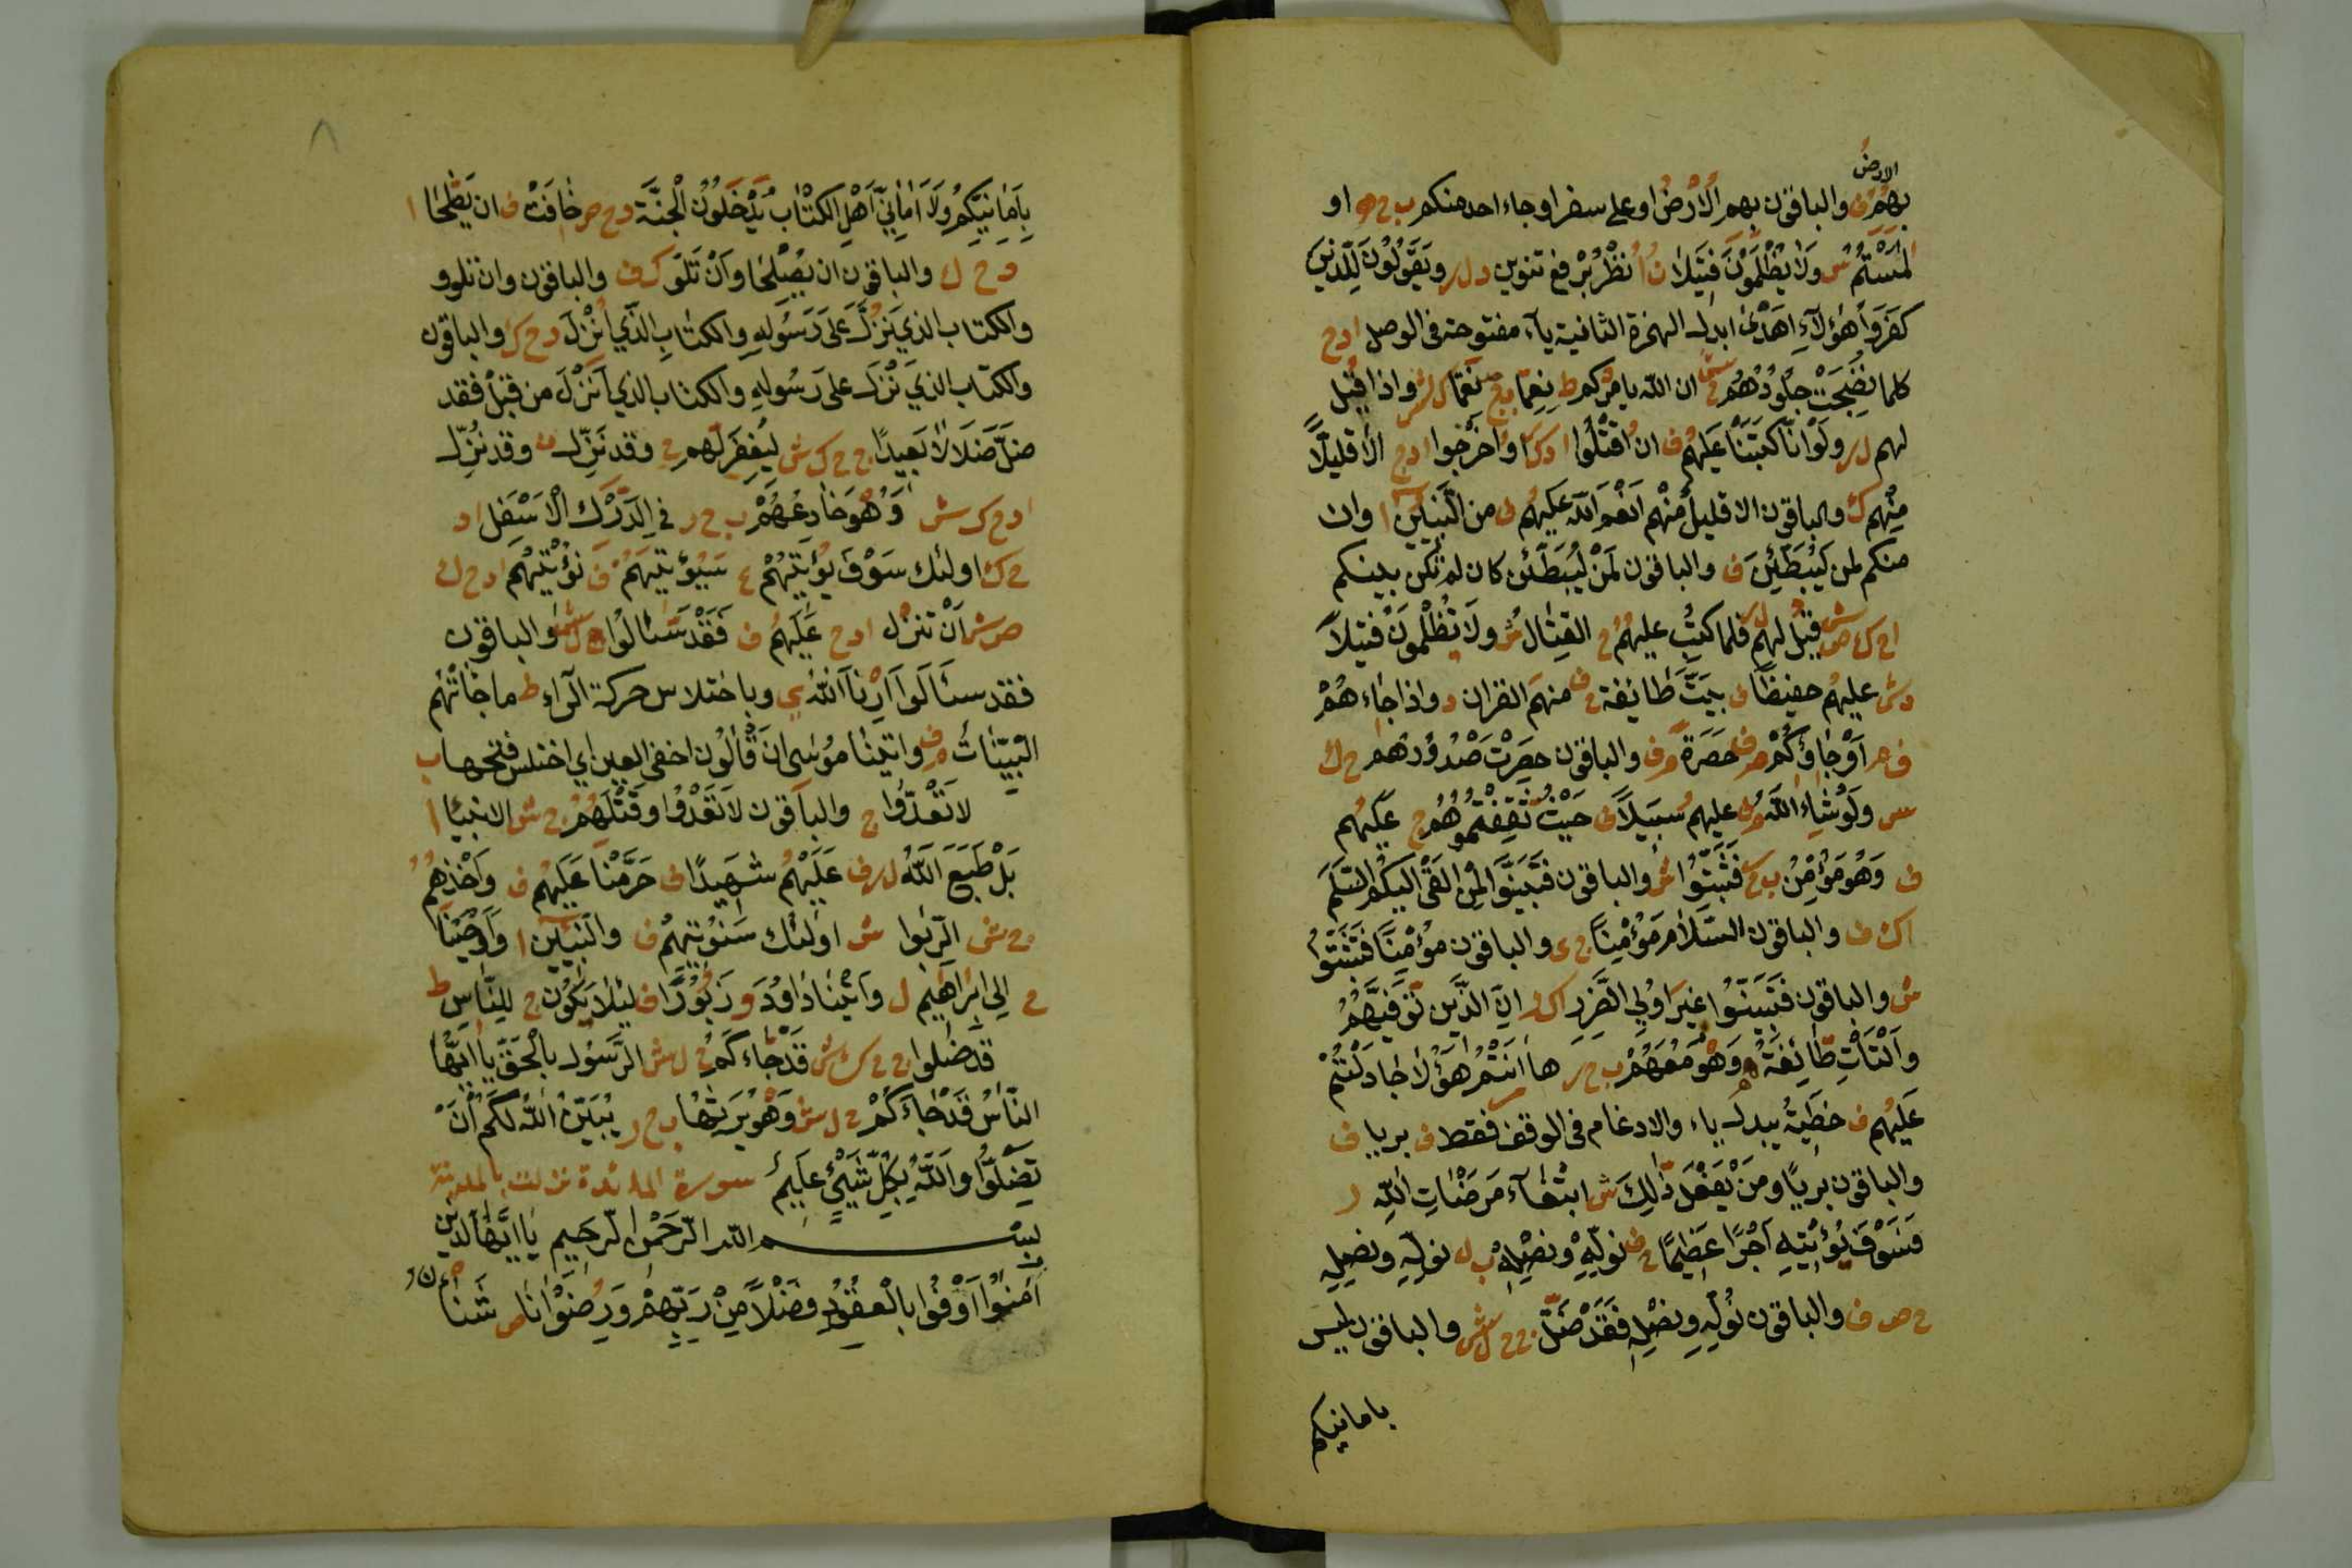 الارض
بهم ف والباقون بهم الارض او على سفر او جاء احد منكم ب ح ه او
لمستم ش ولا يظلمون فتيلا ن ا نظر برفع تنوين د ل ر ويقولون للذين
كفروا هؤلاء اهدى ابدل الهمزة الثانية ياء مفتوحة في الوصل ا د ح
كلما نضجت جلودهم ح ش ان الله يامركم ط نعما ب ح نعما ك ش واذا قيل
لهم ل ر ولو انا كتبنا عليهم ف ان اقتلوا ا د ك ر او اخرجوا ا د ح الا قليلا
منهم ك والباقون الا قليل منهم انعم الله عليهم ف من النبيين ا وان
منكم لمن ليبطئن ف والباقون لمن ليبطئن كان لم تكن بينكم
ا ح ك ص ش قيل لهم ل ر فلما كتب عليهم ح القتال ش ولا يظلمون فتيلا
د ش عليهم حفيظا ف بيت طائفة ح ف منهم القران د واذا جاءهم
ف م او جاؤكم م ف حصرة م ف والباقون حصرت صدورهم ح ك
س ولو شاء الله م ف عليهم سبيلا ف حيث ثقفتموهم ح عليهم
ف وهو مؤمن ب ح فتثبتوا ش والباقون فتبينوا لمن القى اليكم السلم
ا ك ف والباقون السلام مؤمنا ح ى والباقون مؤمنا فتثبتوا
ش والباقون فتبينوا غير اولي الضرر ا ك ر ان الذين توفيهم
ولتات طائفة وهو معهم ب ح ر ها انتم هؤلا جادلتم
عليهم ف خطية يبدل ياء والادغام في الوقف فقط ف بريا ف
والباقون بريا ومن يفعل ذالك ش ابتغاء مرضات الله ر
فسوف يؤتيه اجرا عظيما ح ف نوله ونصله ب ل نوله ونصله
ح ص ف والباقون نوله ونصله فقد ضل ج ح ل ش والباقون ليس
بامانيكم
٨
بامانيكم ولا اماني اهل الكتاب يدخلون الجنة د ح ص خافت ف ان يصلحا ا
د ح ل والباقون ان يصلحا وان تلو ك ف والباقون وان تلوو
والكتاب الذي نزل على رسوله والكتاب الذي انزل د ح ك والباقون
والكتاب الذي نزل على رسوله والكتاب الذي انزل من قبل فقد
ضل ضلالا بعيدا ج ح ك ش ليغفر لهم ح وقد نزل ن وقد نزل
ا د ح ك ش وهو خادعهم ب ح ر في الدرك الاسفل ا د
ح ك اولئك سوف يؤتيهم ع سيؤتيهم ف نؤتيهم ا د ح ل
ص ش ان تنزل ا د ح عليهم ف فقد سئالوا ح ل ش والباقون
فقد سئالوا ارنا الله ى وباختلاس حركة الراء ط ما جائتهم
البينات م ف واتينا موسى ان قالون اخفى العين اي اختلس فتحها ب
لا تعدوا ج والباقون لا تعدوا وقتلهم ح ش الانبئا ا
بل طبع الله ل ر ف عليهم شهيدا ف حرمنا عليهم ف واخذهم
ح ش الربوا ش اولئك سنؤتيهم ف والنبيين ا واوحينا
ح الى ابراهيم ل واتينا داود و زبورا ف ليئلا يكون ج للناس ط
قد ضلوا ج ح ك ش قد جاءكم ح ل ش الرسول بالحق يا ايها
الناس قد جاءكم ح ل ش وهو يرثها ب ح ر يبين الله لكم ان
تضلوا والله بكل شيئ عليم سورة المائدة نزلت بالمدينة
بسم الله الرحمن الرحيم يا ايها الذين
امنوا اوفوا بالعقود فضلا من ربهم ورضوانا ص شنا